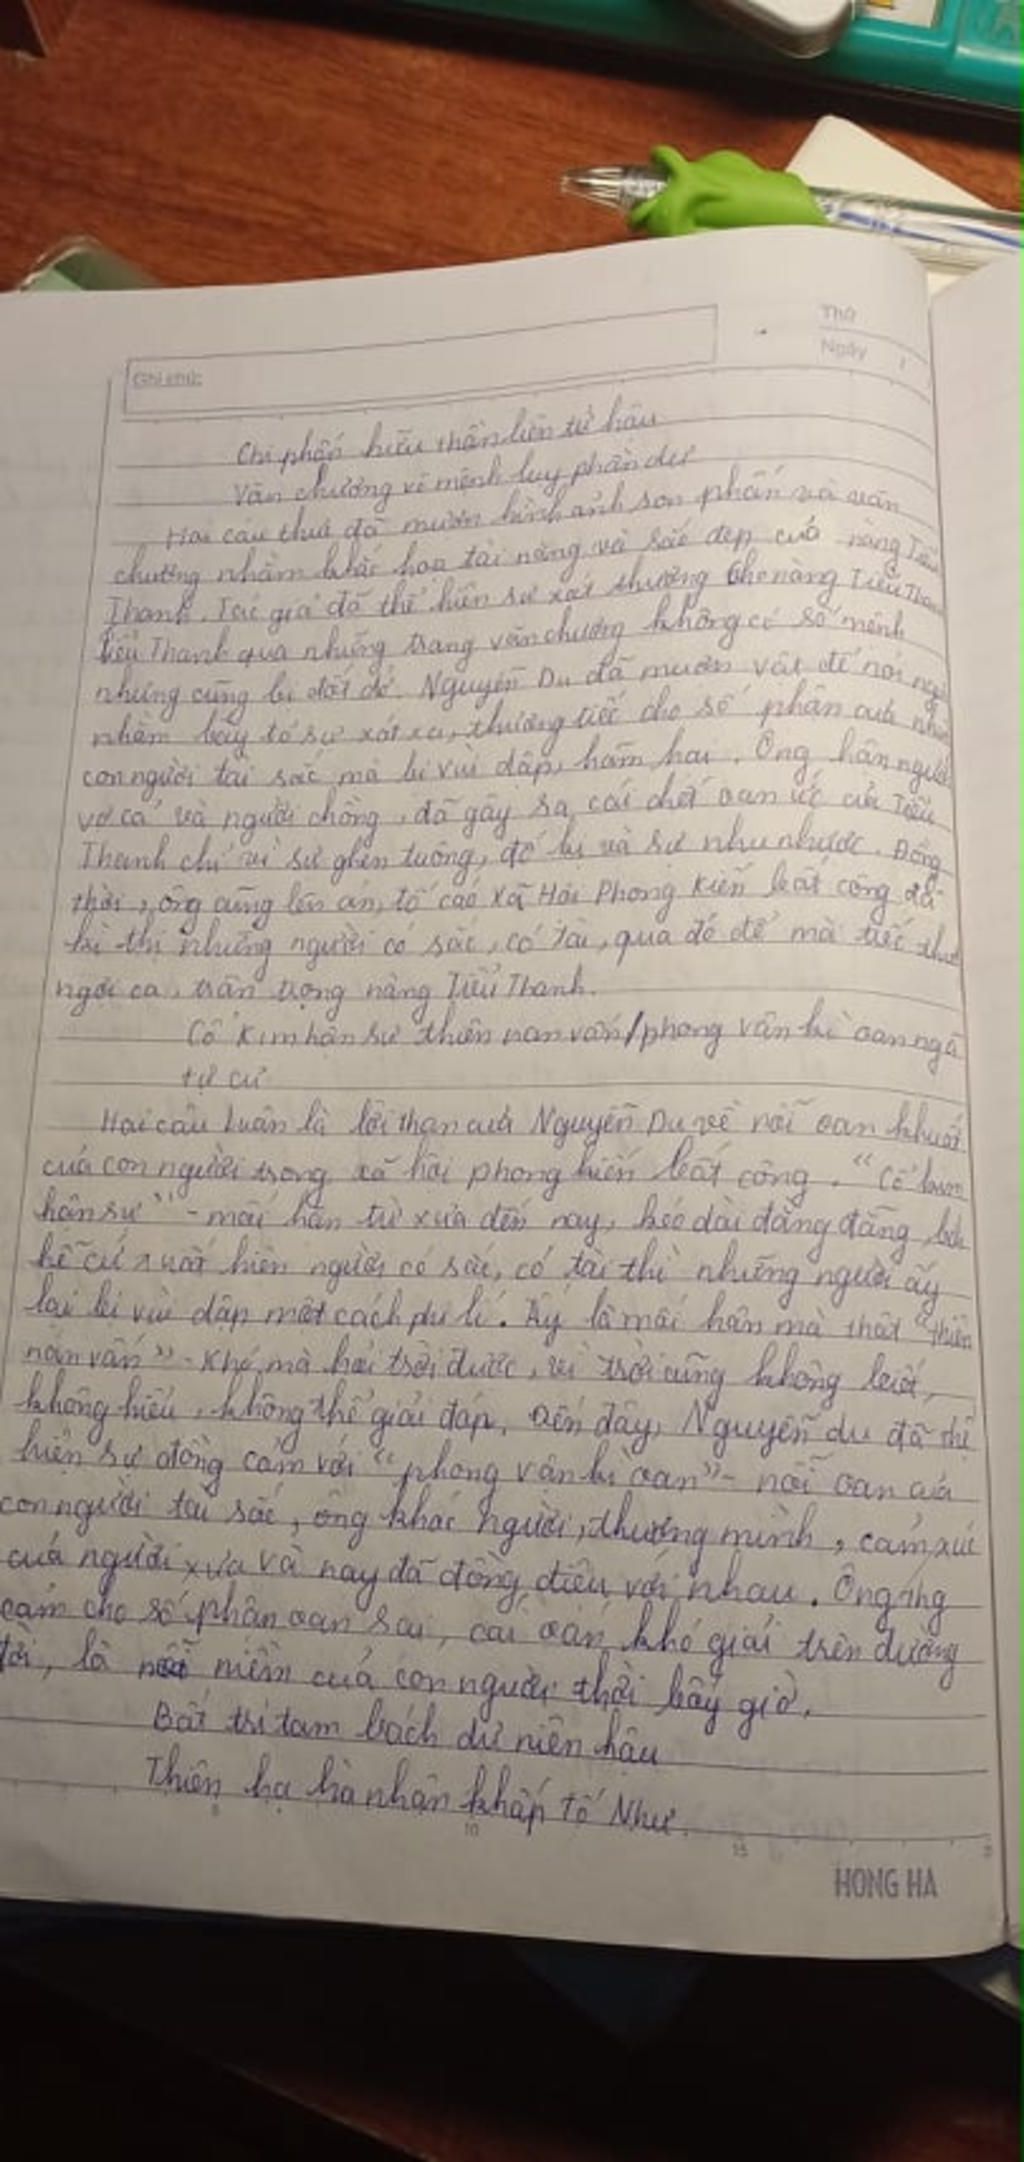 Thứ
Ngày /
Ghi chú:
Chi phấn hữu thần liên tử hậu
Văn chương vô mệnh lụy phần dư
Hai câu thuề đã mượn hình ảnh son phấn và văn
chương nhằm khắc họa tài năng và sắc đẹp của nàng Tiểu
Thanh. Tác giả đã thể hiện sự xót thương cho nàng Tiểu Thanh
Tiểu Thanh qua những trang văn chương không có số mệnh
nhưng cũng bị đốt dở. Nguyễn Du đã mượn vật để nói người
nhằm bày tỏ sự xót xa, thương tiếc cho số phận của những
con người tài sắc mà bị vùi dập, hãm hại. Ông hận người
vợ cả và người chồng, đã gây ra cái chết oan ức của Tiểu
Thanh chỉ vì sự ghen tuông, đố kị và sự nhu nhược. Đồng
thời, ông cũng lên án, tố cáo Xã Hội Phong Kiến bất công đã
kì thị những người có sắc, có tài, qua đó để mà tiếc thương
ngợi ca, trân trọng nàng Tiểu Thanh.
Cổ kim hận sự thiên nan vấn/phong vận kì oan ngã
tự cư
Hai câu luận là lời than của Nguyễn Du về nỗi oan khuất
của con người trong xã hội phong kiến bất công. "Cổ kim
hận sự" - mối hận từ xưa đến nay, kéo dài đằng đẵng, bởi
hễ cứ xuất hiện người có sắc, có tài thì những người ấy
lại bị vùi dập một cách phi lí. Ấy là mối hận mà thật "thiên
nan vấn" - Khó mà hỏi trời được, vì trời cũng không biết,
không hiểu, không thể giải đáp. Đến đây, Nguyễn du đã thể
hiện sự đồng cảm với "phong vận kì oan" - nỗi oan của
con người tài sắc, ông khóc người, thương mình, cảm xúc
của người xưa và nay đã đồng điệu với nhau. Ông ứng
cảm cho số phận oan sai, cái oán khó giải trên đường
đời, là niềm của con người thời bấy giờ.
Bất tri tam bách dư niên hậu
Thiên hạ hà nhân khấp Tố Như.
10
15
HONG HA